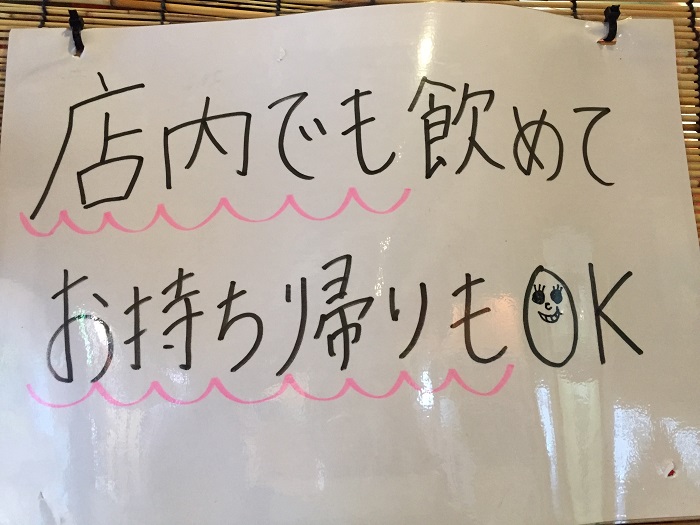 店内でも飲めて
お持ち帰りもOK